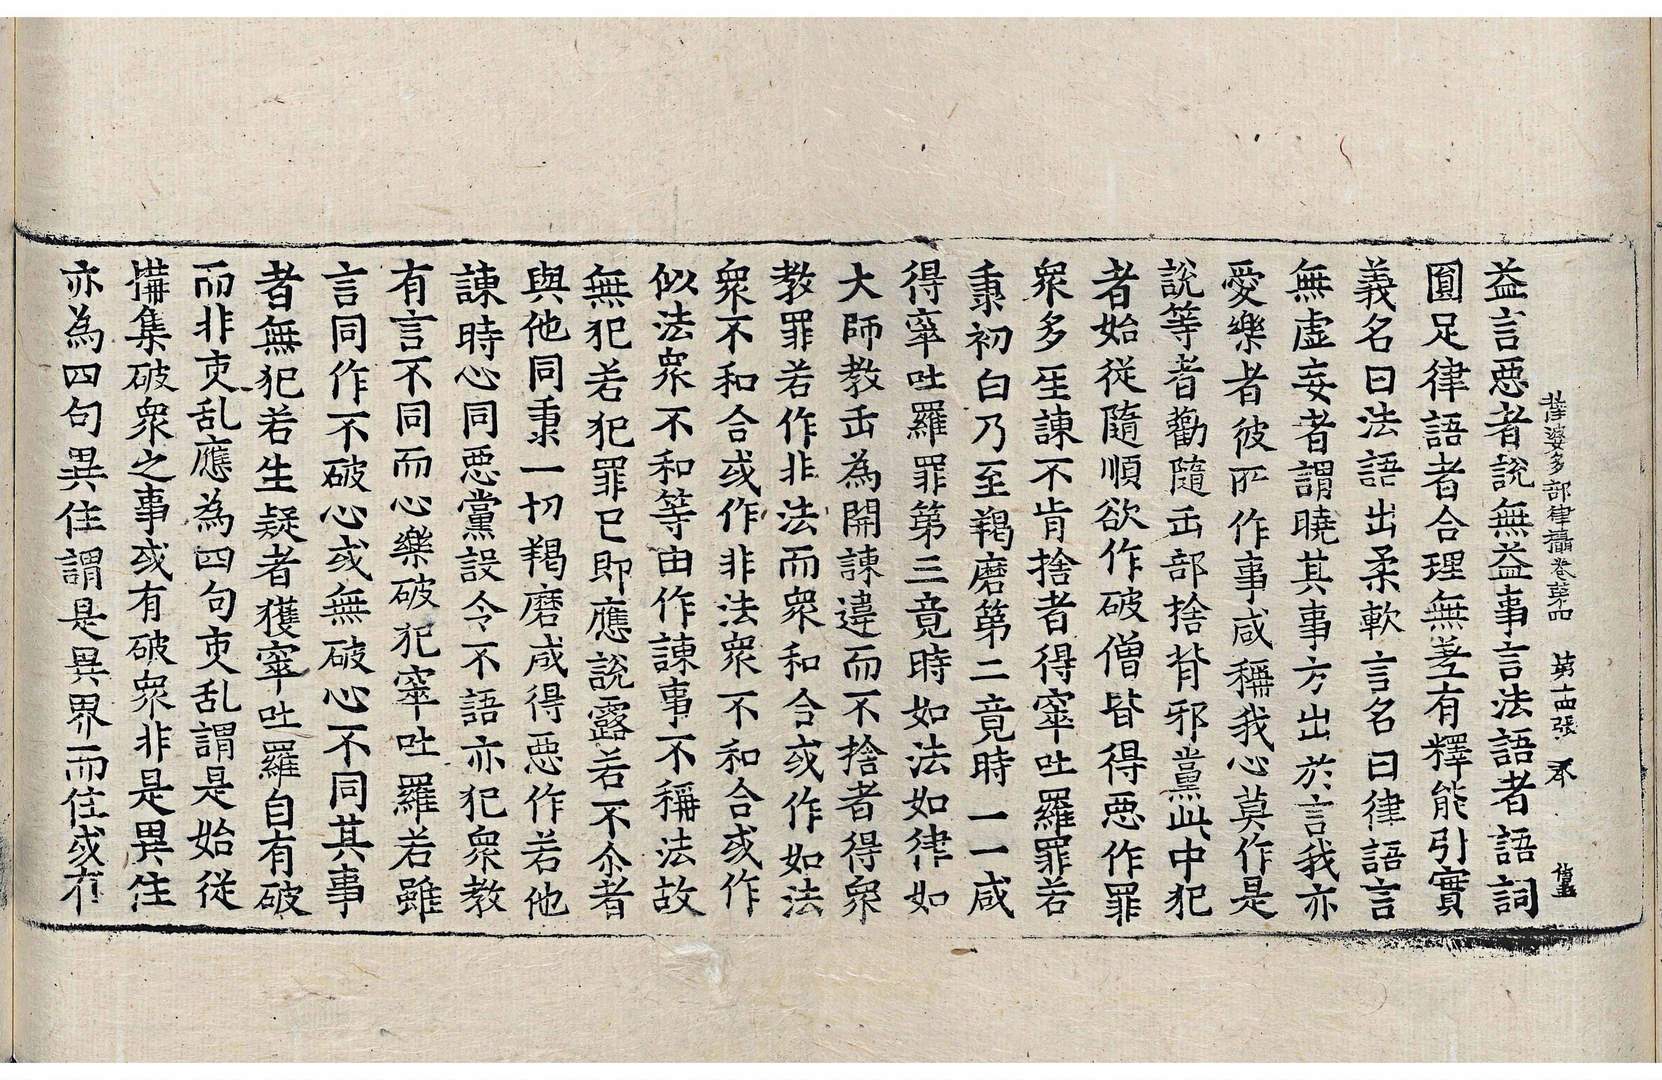 薩婆多部律攝卷第四　第十四張　禾
益言惡者說無益事言法語者語詞
圓足律語者合理無差有釋能引實
義名曰法語出柔軟言名曰律語言
無虛妄者謂曉其事方出於言我亦
愛樂者彼所作事咸稱我心莫作是
說等者勸隨缶部捨背邪黨此中犯
者始從隨順欲作破僧皆得惡作罪
眾多苾諫不肯捨者得窣吐羅罪若
秉初白乃至羯磨第二竟時一一咸
得窣吐羅罪第三竟時如法如律如
大師教缶為開諫違而不捨者得眾
教罪若作非法而眾和合或作如法
眾不和合或作非法眾不和合或作
似法眾不和等由作諫事不稱法故
無犯若犯罪已即應說露若不尒者
與他同秉一切羯磨咸得惡作若他
諫時心同惡黨設令不語亦犯眾教
有言不同而心樂破犯窣吐羅若雖
言同作不破心或無破心不同其事
者無犯若生疑者獲窣吐羅自有破
而非吏乱應為四句吏乱謂是始從
搆集破眾之事或有破眾非是異住
亦為四句異住謂是異界而住或有